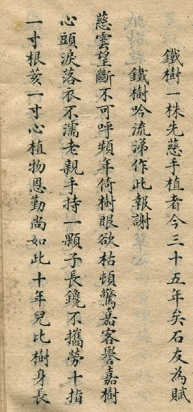 鐵樹一株先慈手植者今三十五年矣石友為賦
鐵樹吟流涕作此報謝
慈雲望斷不可呼頻年倚樹眼欲枯頓驚嘉客譽嘉樹
心頭淚落衣不濡老親手持一顆子長鑱不攜勞十指
一寸根荄一寸心植物恩勤尚如此十年兒比樹身長